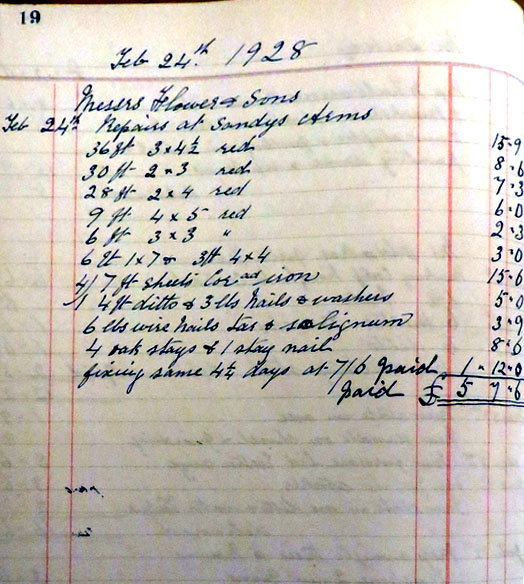 19
Feb 24th 1928
Messrs Flower & Sons
Feb 24th Repairs at Sandys Arms
36 ft 3 x 4½ red 15 . 9
30 ft 2 x 3 red 8 . 6
28 ft 2 x 4 red 7 . 3
9 ft 4 x 5 red 6 . 0
6 ft 3 x 3 " 2 . 3
6 ft 1 x 7 & 3ft 4 x 4 3 . 0
4/ 7 ft sheets Cor ad iron 15 . 6
1 4ft ditto & 3 lbs nails & washers 5 . 0
6 lbs wire nails tar & solignum 3 . 9
4 oak stays & 1 stay nail 8 . 6
fixing same 4¼ days at 7/6 paid 1 " 12 . 0
paid £ 5 7 . 6